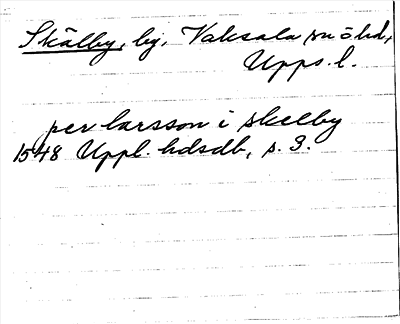 Skälby, by, Vaksala sn o hd,
Upps. l.
per larsson i skelby
1548 Uppl. hdsdb, s. 3.